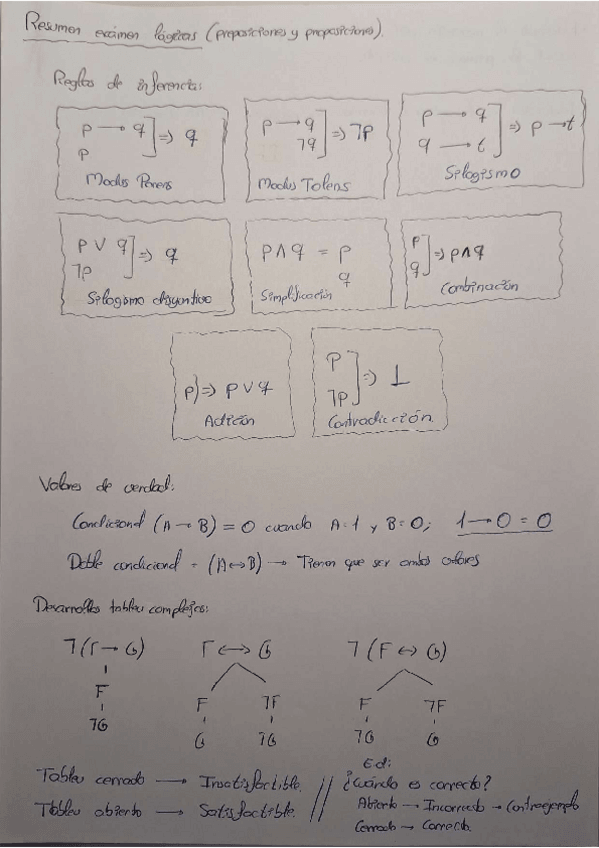 Resumen exámen lógicas (preposiciones y proposiciones).
Reglas de inferencia:
p → q
p
] => q
Modus Ponens
p → q
¬q
] => ¬p
Modus Tolens
p → q
q → t
] => p → t
Silogismo
p ∨ q
¬p
] => q
Silogismo disyuntivo
p ∧ q = p
q
Simplificación
p
q
] => p ∧ q
Combinación
p] => p ∨ q
Adición
p
¬p
] => ⊥
Contradicción
Valores de verdad:
Condicional (A → B) = 0 cuando A=1 y B=0; 1 → 0 = 0
Doble condicional = (A ↔ B) → Tienen que ser ambos valores
Desarrollo tableu complejos:
¬(Γ → G)
F
¬G
Γ ↔ G
F ¬F
G ¬G
¬(F ↔ G)
F ¬F
¬G G
Tableu cerrado → Insatisfactible.
Tableu abierto → Satisfactible.
Ed:
¿Cuándo es correcto?
Abierto → Incorrecto → Contraejemplo
Cerrado → Correcto.